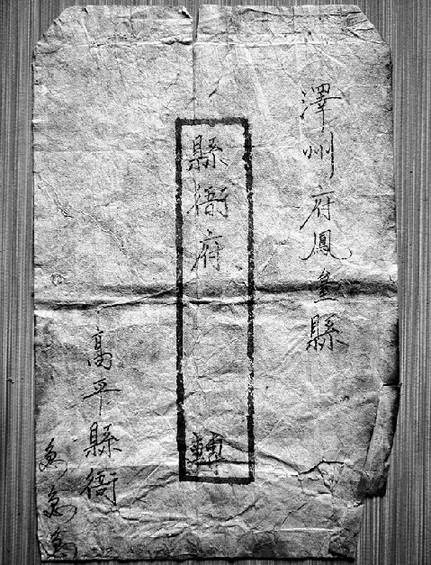 澤州府鳳臺縣
縣衙府　轉
高平縣衙
急急急